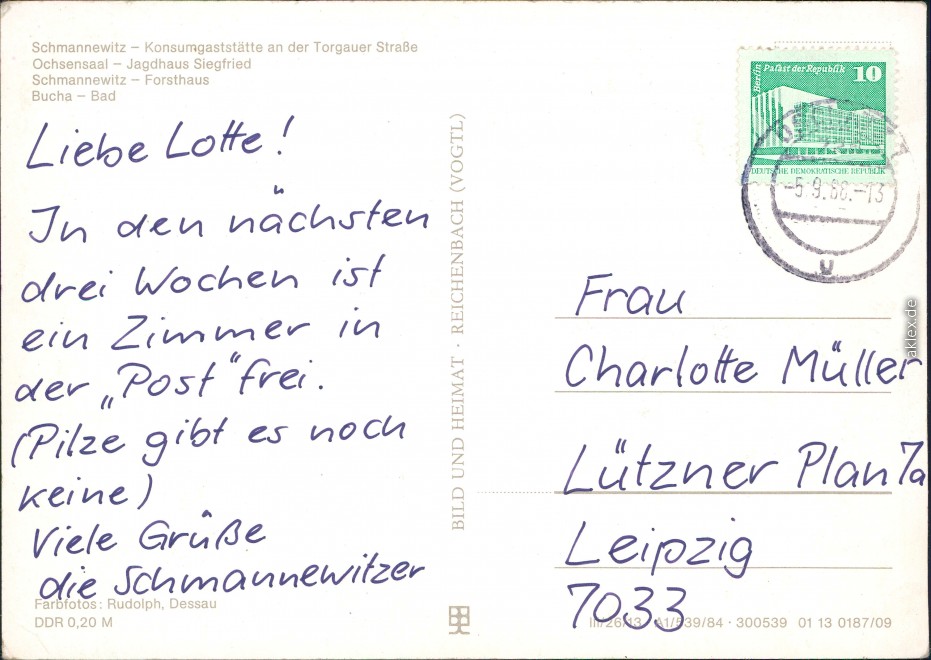 Schmannewitz – Konsumgaststätte an der Torgauer Straße
Ochsensaal – Jagdhaus Siegfried
Schmannewitz – Forsthaus
Bucha – Bad
Liebe Lotte!
In den nächsten
drei Wochen ist
ein Zimmer in
der „Post“ frei.
(Pilze gibt es noch
keine)
Viele Grüße
die Schmannewitzer
Farbfotos: Rudolph, Dessau
DDR 0,20 M
BILD UND HEIMAT · REICHENBACH (VOGTL)
Berlin
Palast der Republik 10
DEUTSCHE DEMOKRATISCHE REPUBLIK
-5.9.86.-13
u
Frau
Charlotte Müller
Lützner Plan 7a
Leipzig
7033
III/26/13 A1/539/84 · 300539 01 13 0187/09
aklex.de